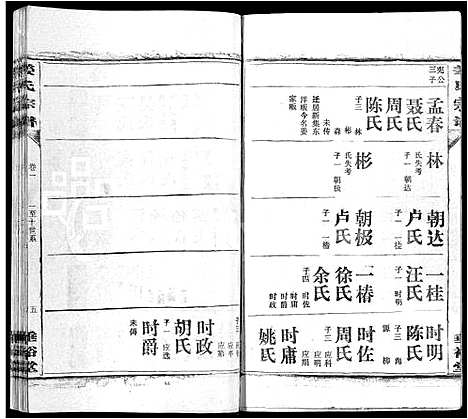 宪公
三子
孟春
聂氏
周氏
陈氏
子三
林
彬
森
未传
迁居新集东
洋畈今名姜
家畈
林
氏失考
子一
朝达
彬
氏失考
子一
朝极
朝达
卢氏
子一
一桂
朝极
卢氏
子一
一椿
一桂
汪氏
子一
时明
一椿
徐氏
余氏
子四
时佐
时庸
时政
时爵
时明
陈氏
子三
海
源
柳
时佐
周氏
子三
应科
应明
应期
时庸
姚氏
姜氏宗谱
卷一
一至十世系
五
垂裕堂
时政
胡氏
子三
应亨
应聆
时爵
子一
应选
未传